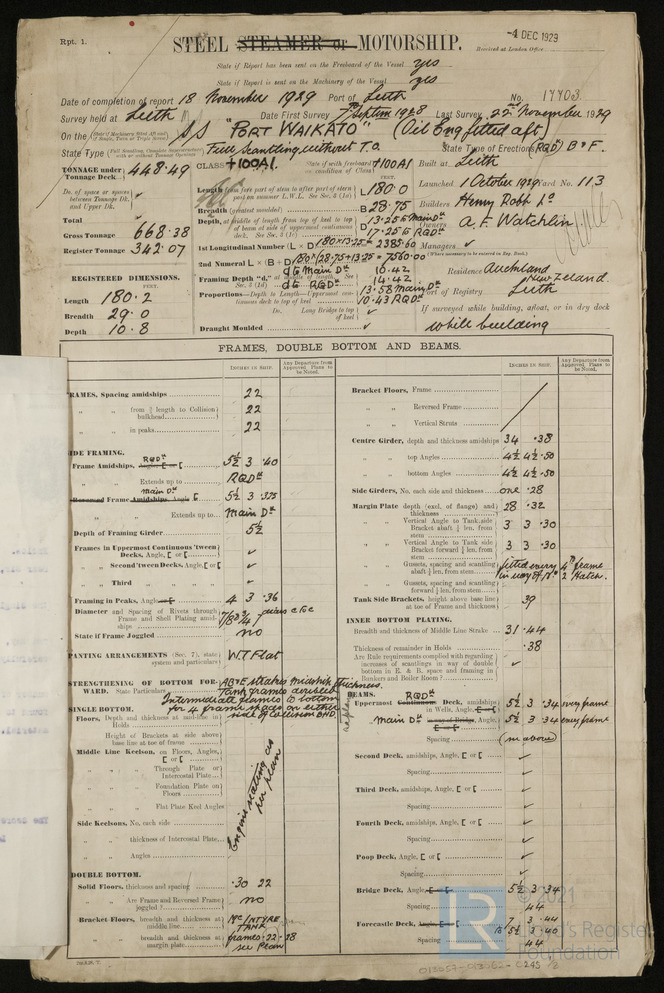 Rpt. 1.
-4 DEC 1929
STEEL STEAMER or MOTORSHIP.
Received at London Office
State if Report has been sent on the Freeboard of the Vessel yes
State if Report is sent on the Machinery of the Vessel yes
Date of completion of report 18 November 1929 Port of Leith No. 17703
Survey held at Leith Date First Survey 7th Septem 1928 Last Survey 22nd November 1929
On the S/S "PORT WAIKATO" (Oil Eng fitted aft)
State Type Full Scantling without T.O. State Type of Erections (RQD) B & F.
TONNAGE under Tonnage Deck 448.49
CLASS +100A1. State if with freeboard as condition of Class +100A1
Built at Leith
Do. of space or spaces between Tonnage Dk. and Upper Dk.
Launched 1 October 1929 Yard No. 113
Total
Gross Tonnage 668.38
Register Tonnage 342.07
Length from fore part of stem to after part of stern post on summer L.W.L. See Sec. 3 (1a) L 180.0
Breadth (greatest moulded) B 28.75
Depth, at middle of length from top of keel to top of beam at side of uppermost continuous deck. See Sec. 3 (1c) D 13.25 to Main Dk
17.25 to RQDk
1st Longitudinal Number (L × D) 180 × 13.25 = 2385.00
2nd Numeral L × (B + D) 180 (28.75 + 13.25 = 7560.00
Framing Depth "d," at middle of length. See Sec. 3 (1d) d to Main Dk 10.42
d to RQDk 14.42
Proportions—Depth to Length—Uppermost continuous deck to top of keel 13.58 Main Dk
10.43 RQDk
Do. Long Bridge to top of keel
Draught Moulded
Builders Henry Robb Ld
Owners A. F. Watchlin
Managers
(Where necessary to be entered in Reg. Book.)
Residence Auckland New Zealand
Port of Registry Leith
If surveyed while building, afloat, or in dry dock
while building
REGISTERED DIMENSIONS.
FEET.
Length 180.2
Breadth 29.0
Depth 10.8
FRAMES, DOUBLE BOTTOM AND BEAMS.
INCHES IN SHIP.
Any Departure from Approved Plans to be Noted.
FRAMES, Spacing amidships 22
" " from ⅗ length to Collision bulkhead 22
" " in peaks 22
SIDE FRAMING.
Frame Amidships, RQDk 5½ 3 .40
" " Extends up to RQDk
Reversed Frame Amidships, Angle Main Dk 5½ 3 .375
" " Extends up to Main Dk
Depth of Framing Girder 5½
Frames in Uppermost Continuous 'tween Decks, Angle, [ or [
" Second 'tween Decks, Angle, [ or [
" Third " " "
Framing in Peaks, Angle 4 3 .36
Diameter and Spacing of Rivets through Frame and Shell Plating amidships 7/8 & 3/4 7 diars c to c
State if Frame Joggled no
PANTING ARRANGEMENTS (Sec. 7), state system and particulars W.T. Flat
STRENGTHENING OF BOTTOM FORWARD. State Particulars AB+E strakes midship thickness.
Tank frames doubled
Intermediate frames to bottom for 4 frame spaces on either side of collision BHD.
SINGLE BOTTOM.
Floors, Depth and thickness at mid-line in Holds
" Height of Brackets at side above base line at toe of frame
Middle Line Keelson, on Floors, Angles, [ or [
" " Through Plate or Intercostal Plate
" " Foundation Plate on Floors
" " Flat Plate Keel Angles
Engine seating as per plan
Side Keelsons, No. each side
" " thickness of Intercostal Plate
" " Angles
DOUBLE BOTTOM.
Solid Floors, thickness and spacing .30 22
" " Are Frame and Reversed Frame joggled? no
Bracket Floors, breadth and thickness at middle line McINTYRE TANK
" " breadth and thickness at margin plate frames .22 - .28
see plan
Bracket Floors, Frame
" " Reversed Frame
" " Vertical Struts
Centre Girder, depth and thickness amidships 34 .38
" " top Angles 4½ 4½ .50
" " bottom Angles 4½ 4½ .50
Side Girders, No. each side and thickness one .28
Margin Plate depth (excl. of flange) and thickness 28 .32
" " Vertical Angle to Tank side Bracket abaft ¼ len. from stem 3 3 .30
" " Vertical Angle to Tank side Bracket forward ¼ len. from stem 3 3 .30
" " Gussets, spacing and scantling abaft ¼ len. from stem fitted every 4th frame
in way of No 2 Hatch.
" " Gussets, spacing and scantling forward ¼ len. from stem
Tank Side Brackets, height above base line at toe of Frame and thickness 39
INNER BOTTOM PLATING.
Breadth and thickness of Middle Line Strake 31 .44
Thickness of remainder in Holds .38
Are Rule requirements complied with regarding increases of scantlings in way of double bottom in E. & B. space and framing in Bunkers and Boiler Room?
BEAMS.
Uppermost Continuous Deck, amidships RQDk 5½ 3 .34 every frame
Main Dk 5½ 3 .34 every frame
Spacing (as above)
Second Deck, amidships, Angle, [ or [
Spacing
Third Deck, amidships, Angle, [ or [
Spacing
Fourth Deck, amidships, Angle, [ or [
Spacing
Poop Deck, Angle, [ or [
Spacing
Bridge Deck, Angle 5½ 3 .34
Spacing 44
Forecastle Deck, Angle 7 3 .44
to 5½ 3 .40
Spacing 44
© 2021
LR
Lloyd's Register Foundation